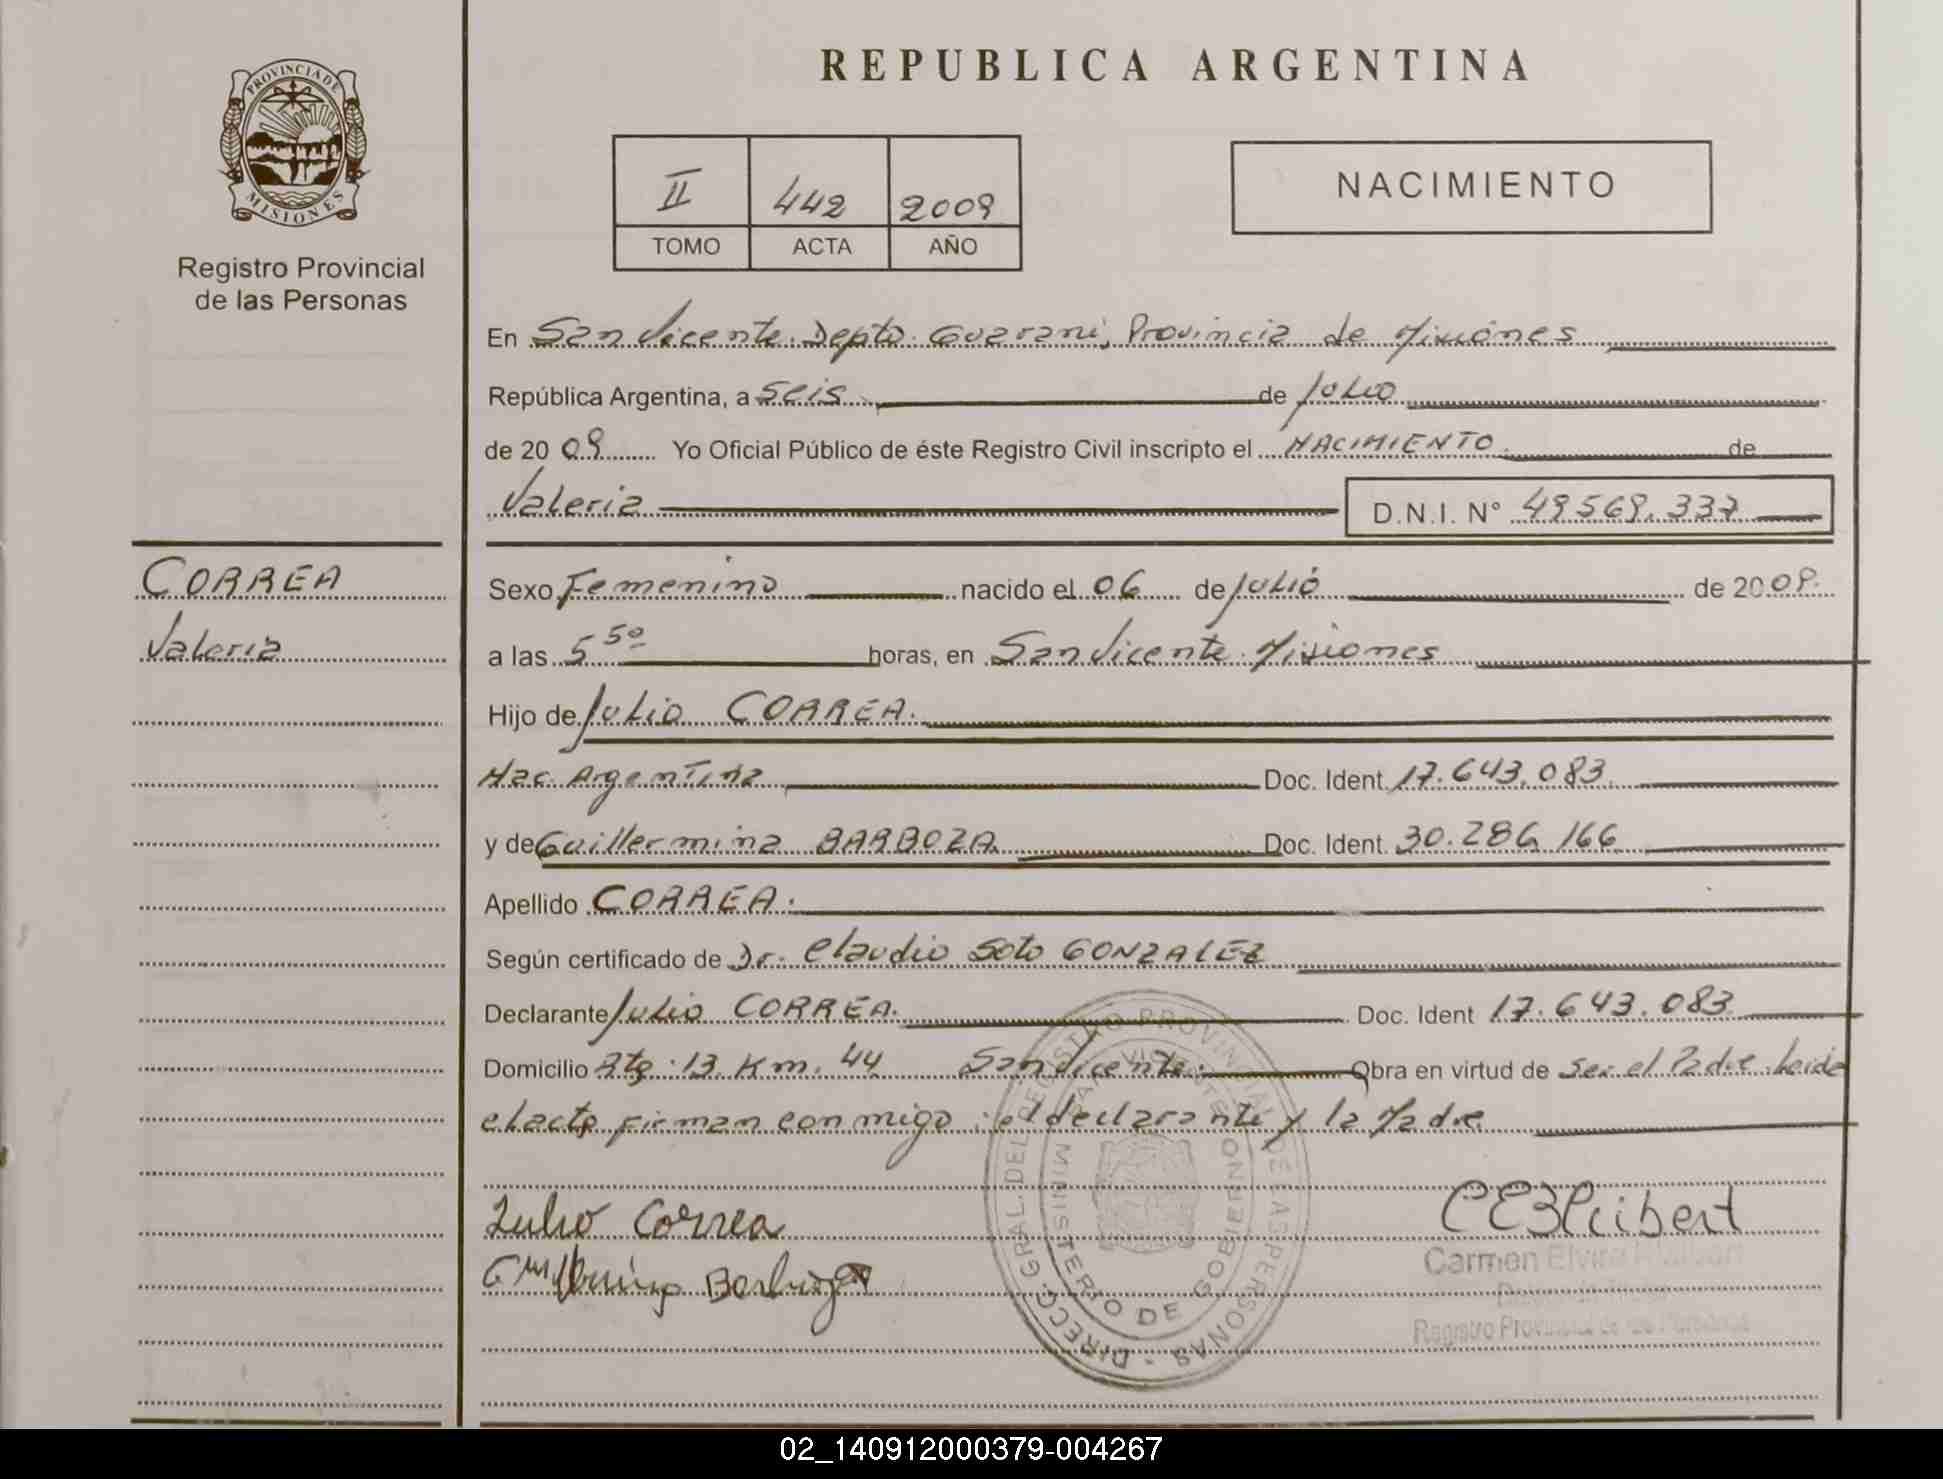 REPUBLICA ARGENTINA
PROVINCIA DE
MISIONES
Registro Provincial
de las Personas
II 442 2009
TOMO ACTA AÑO
NACIMIENTO
En San Vicente. Depto. Guarani, Provincia de Misiones
República Argentina, a Seis de Julio
de 20 09 Yo Oficial Público de éste Registro Civil inscripto el NACIMIENTO de
Valeria D.N.I. N° 49.569.337
CORREA
Valeria
Sexo Femenino nacido el 06 de Julio de 2009.
a las 5 50 horas, en San Vicente. Misiones
Hijo de Julio CORREA.
Nac. Argentina Doc. Ident. 17.643.083.
y de Guillermina BARBOZA Doc. Ident. 30.286.166
Apellido CORREA.
Según certificado de Dr. Claudio Soto GONZALEZ
Declarante Julio CORREA. Doc. Ident 17.643.083
Domicilio Rta. 13 Km. 44 San Vicente. Obra en virtud de Ser el Padre. Leida
el acta firman conmigo: el declarante y la Madre
Julio Correa
Carmen Elvira
Registro Provincial de las Personas
DIRECC. GRAL. DEL REGISTRO PROVINCIAL DE LAS PERSONAS -
MINISTERIO DE GOBIERNO
SAN VICENTE
02_140912000379-004267